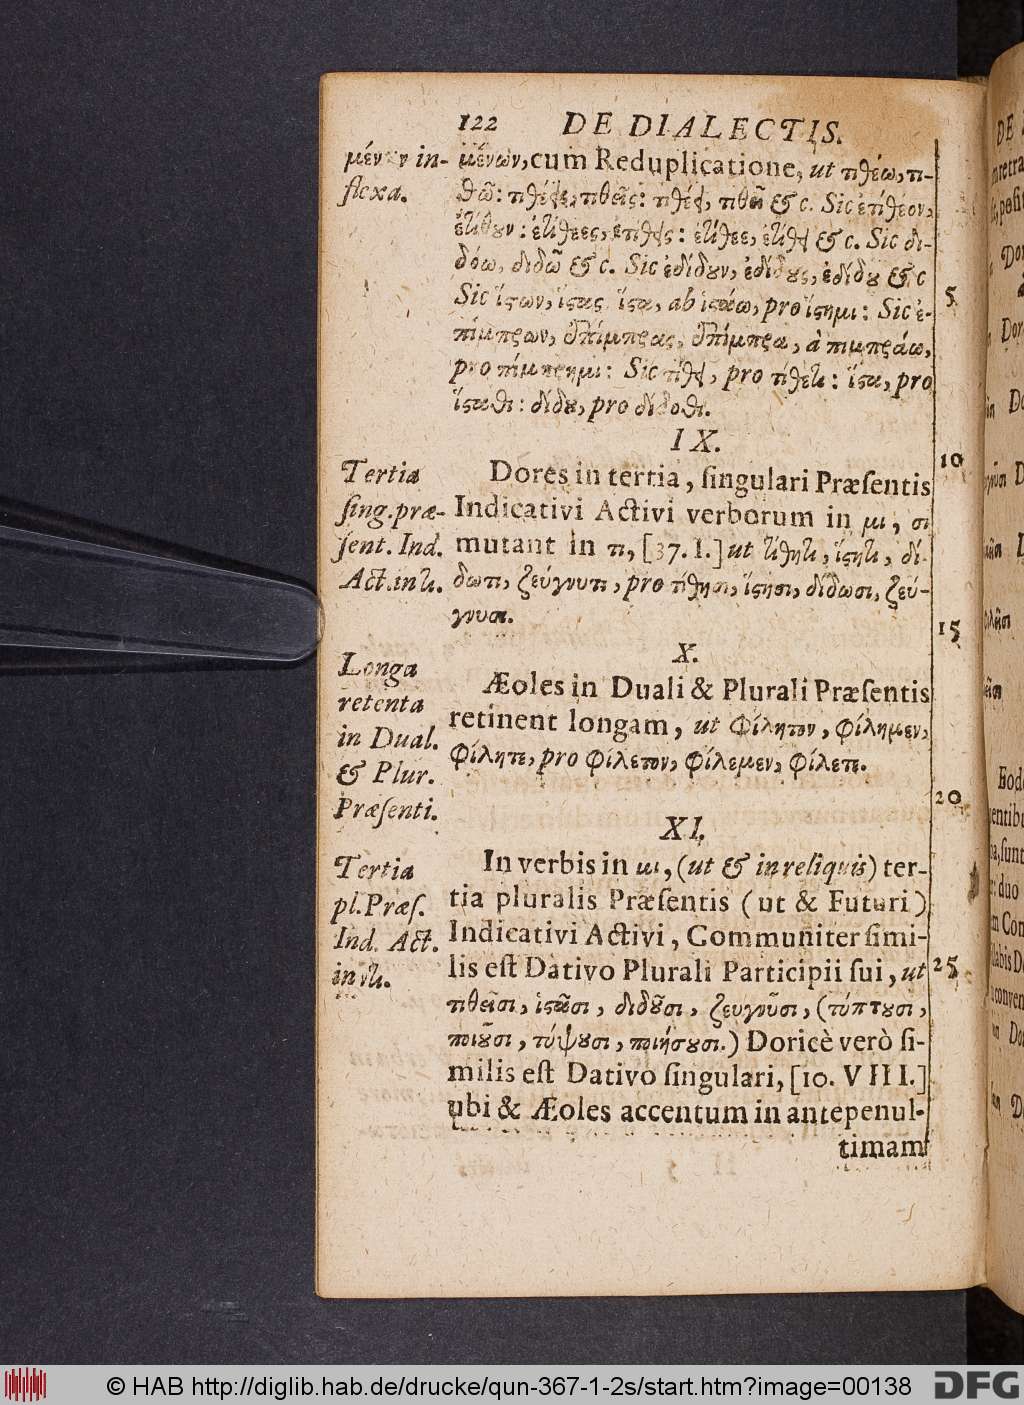 122 DE DIALECTIS.
μένων in-
flexa.
μένων, cum Reduplicatione, ut τιθέω, τι-
θῶ: τιθέεις, τιθεῖς: τιθέει, τιθεῖ & c. Sic ἐτίθεον,
ἐτίθουν: ἐτίθεες, ἐτίθεις: ἐτίθεε, ἐτίθει & c. Sic δι-
δόω, διδῶ & c. Sic ἐδίδουν, ἐδίδους, ἐδίδου & c
Sic ἵστων, ἵστας ἵστα, ab ἱστάω, pro ἵστημι: Sic ἐ-
πίμπρων, ἐπίμπρας, ἐπίμπρα, à πιμπράω,
pro πίμπρημι: Sic τίθει, pro τίθετι: ἵστα, pro
ἵσταθι: δίδου, pro δίδοθι.
5
IX.
Tertia
sing. præ-
sent. Ind.
Act. in τι.
Dores in tertia, ſingulari Præſentis
Indicativi Activi verborum in μι, σι
mutant in τι, [37. I.] ut τίθητι, ἵστητι, δί-
δωτι, ζεύγνυτι, pro τίθησι, ἵστησι, δίδωσι, ζεύ-
γνυσι.
10
15
X.
Longa
retenta
in Dual.
& Plur.
Præſenti.
Æoles in Duali & Plurali Præſentis
retinent longam, ut φίλητον, φίλημεν,
φίλητε, pro φίλετον, φίλεμεν, φίλετε.
20
XI.
Tertia
pl. Præſ.
Ind. Act.
in ντι.
In verbis in μι, (ut & in reliquis) ter-
tia pluralis Præſentis (ut & Futuri)
Indicativi Activi, Communiter ſimi-
lis eſt Dativo Plurali Participii ſui, ut
τιθεῖσι, ἱστᾶσι, διδοῦσι, ζευγνῦσι, (τύπτουσι,
ποιοῦσι, τύψουσι, ποιήσουσι.) Doricè verò ſi-
milis eſt Dativo ſingulari, [10. VIII.]
ubi & Æoles accentum in antepenul-
timam
25
© HAB http://diglib.hab.de/drucke/qun-367-1-2s/start.htm?image=00138
DFG